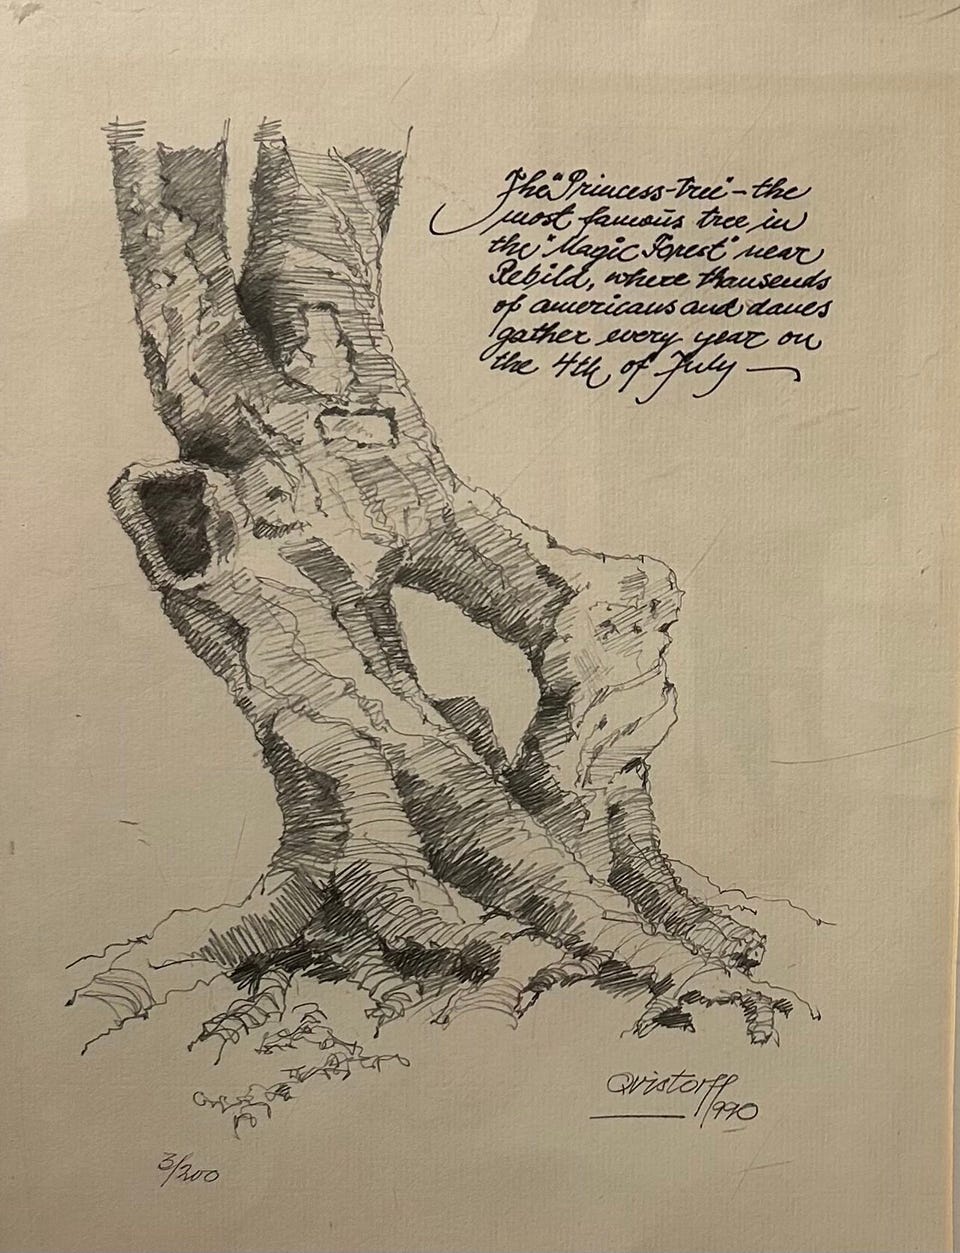 The "Princess-tree" – the
most famous tree in
the "Magic Forest" near
Rebild, where thousends
of americans and danes
gather every year on
the 4th of July —
Qvistorff
1990
3/200